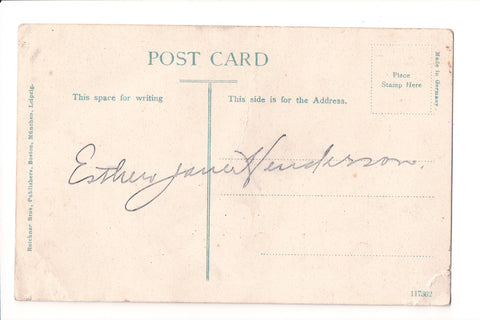 POST CARD
Place
Stamp Here
Made in Germany
This space for writing
This side is for the Address.
Esther Jane Henderson.
Reichner Bros, Publishers, Boston, München, Leipzig.
117382